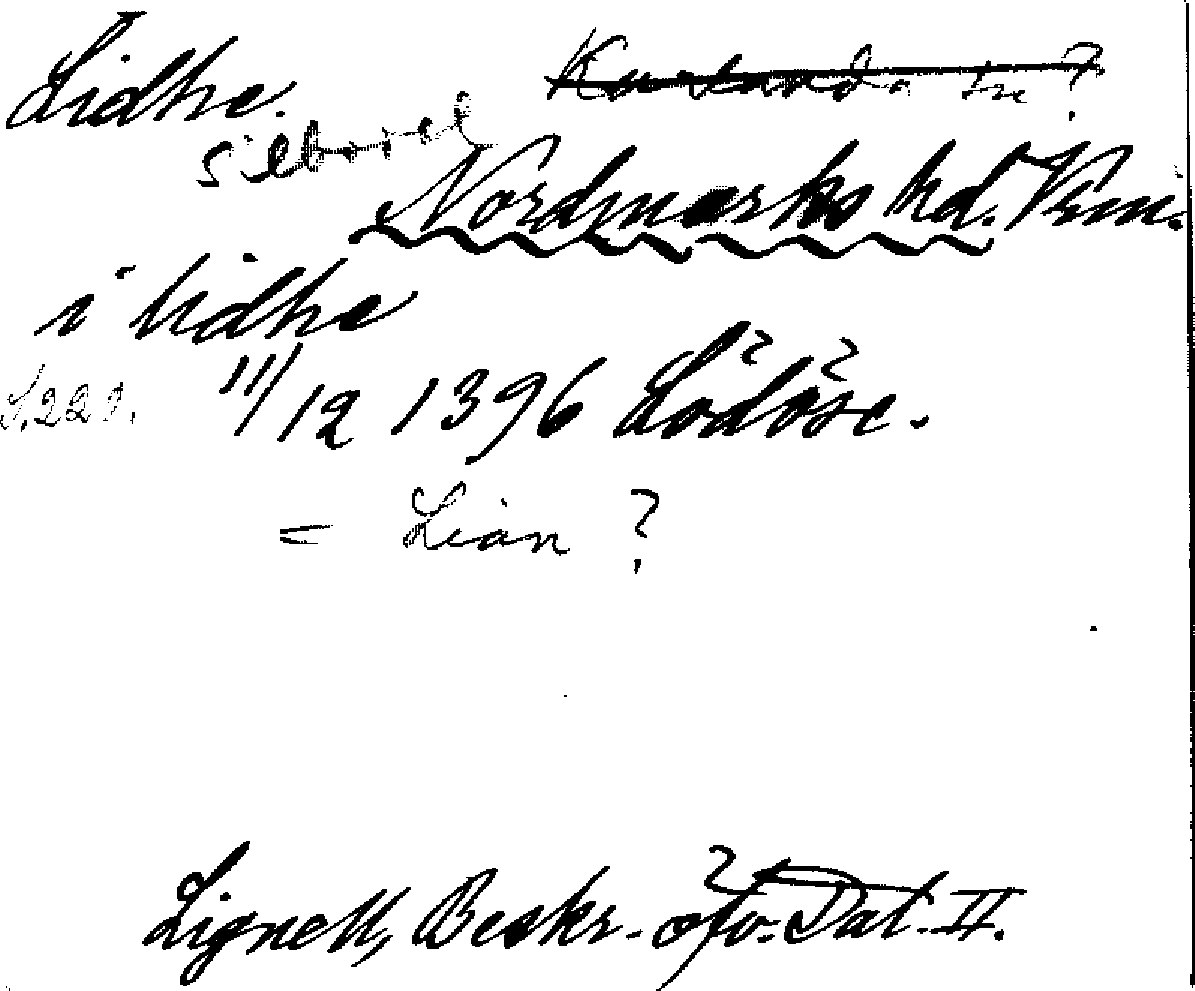 Lidhe.
Silbodal
Nordmarks hd. Vrm.
i lidhe
S. 221. 11/12 1396 Lödöse.
= Lian ?
Lignell, Beskr. öfv. Dal. II.